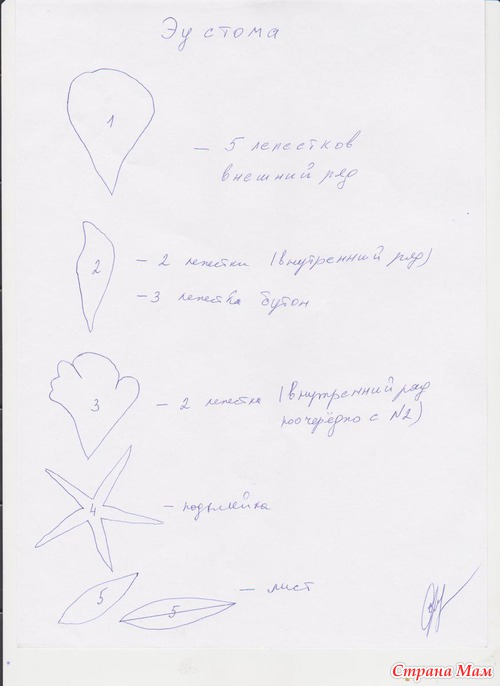 Эустома
1
— 5 лепестков
внешний ряд
2
— 2 лепестки (внутренний ряд)
— 3 лепестка бутон
3
— 2 лепестка (внутренний ряд
поочерёдно с N2)
4
— подклейка
5
5
— лист
Страна Мам